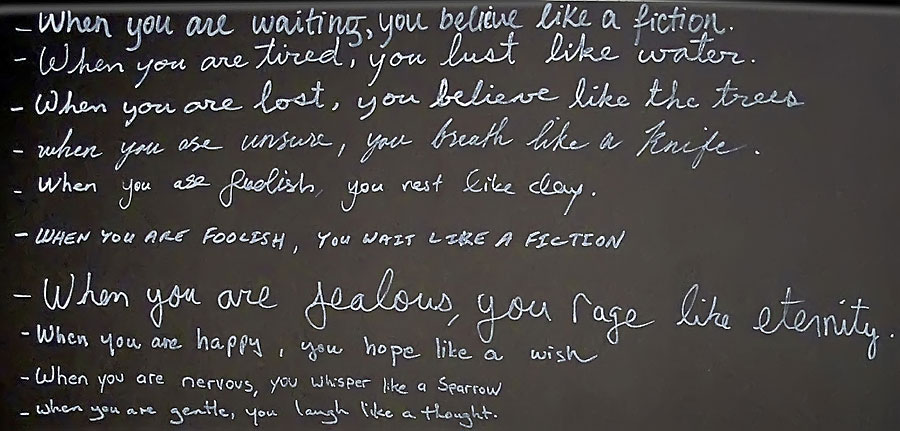 - When you are waiting, you believe like a fiction.
- When you are tired, you lust like water.
- When you are lost, you believe like the trees
- when you are unsure, you breath like a knife.
- When you are foolish, you rest like clay.
- WHEN YOU ARE FOOLISH, YOU WAIT LIKE A FICTION
- When you are jealous, you rage like eternity.
- When you are happy, you hope like a wish
- When you are nervous, you whisper like a sparrow
- when you are gentle, you laugh like a thought.